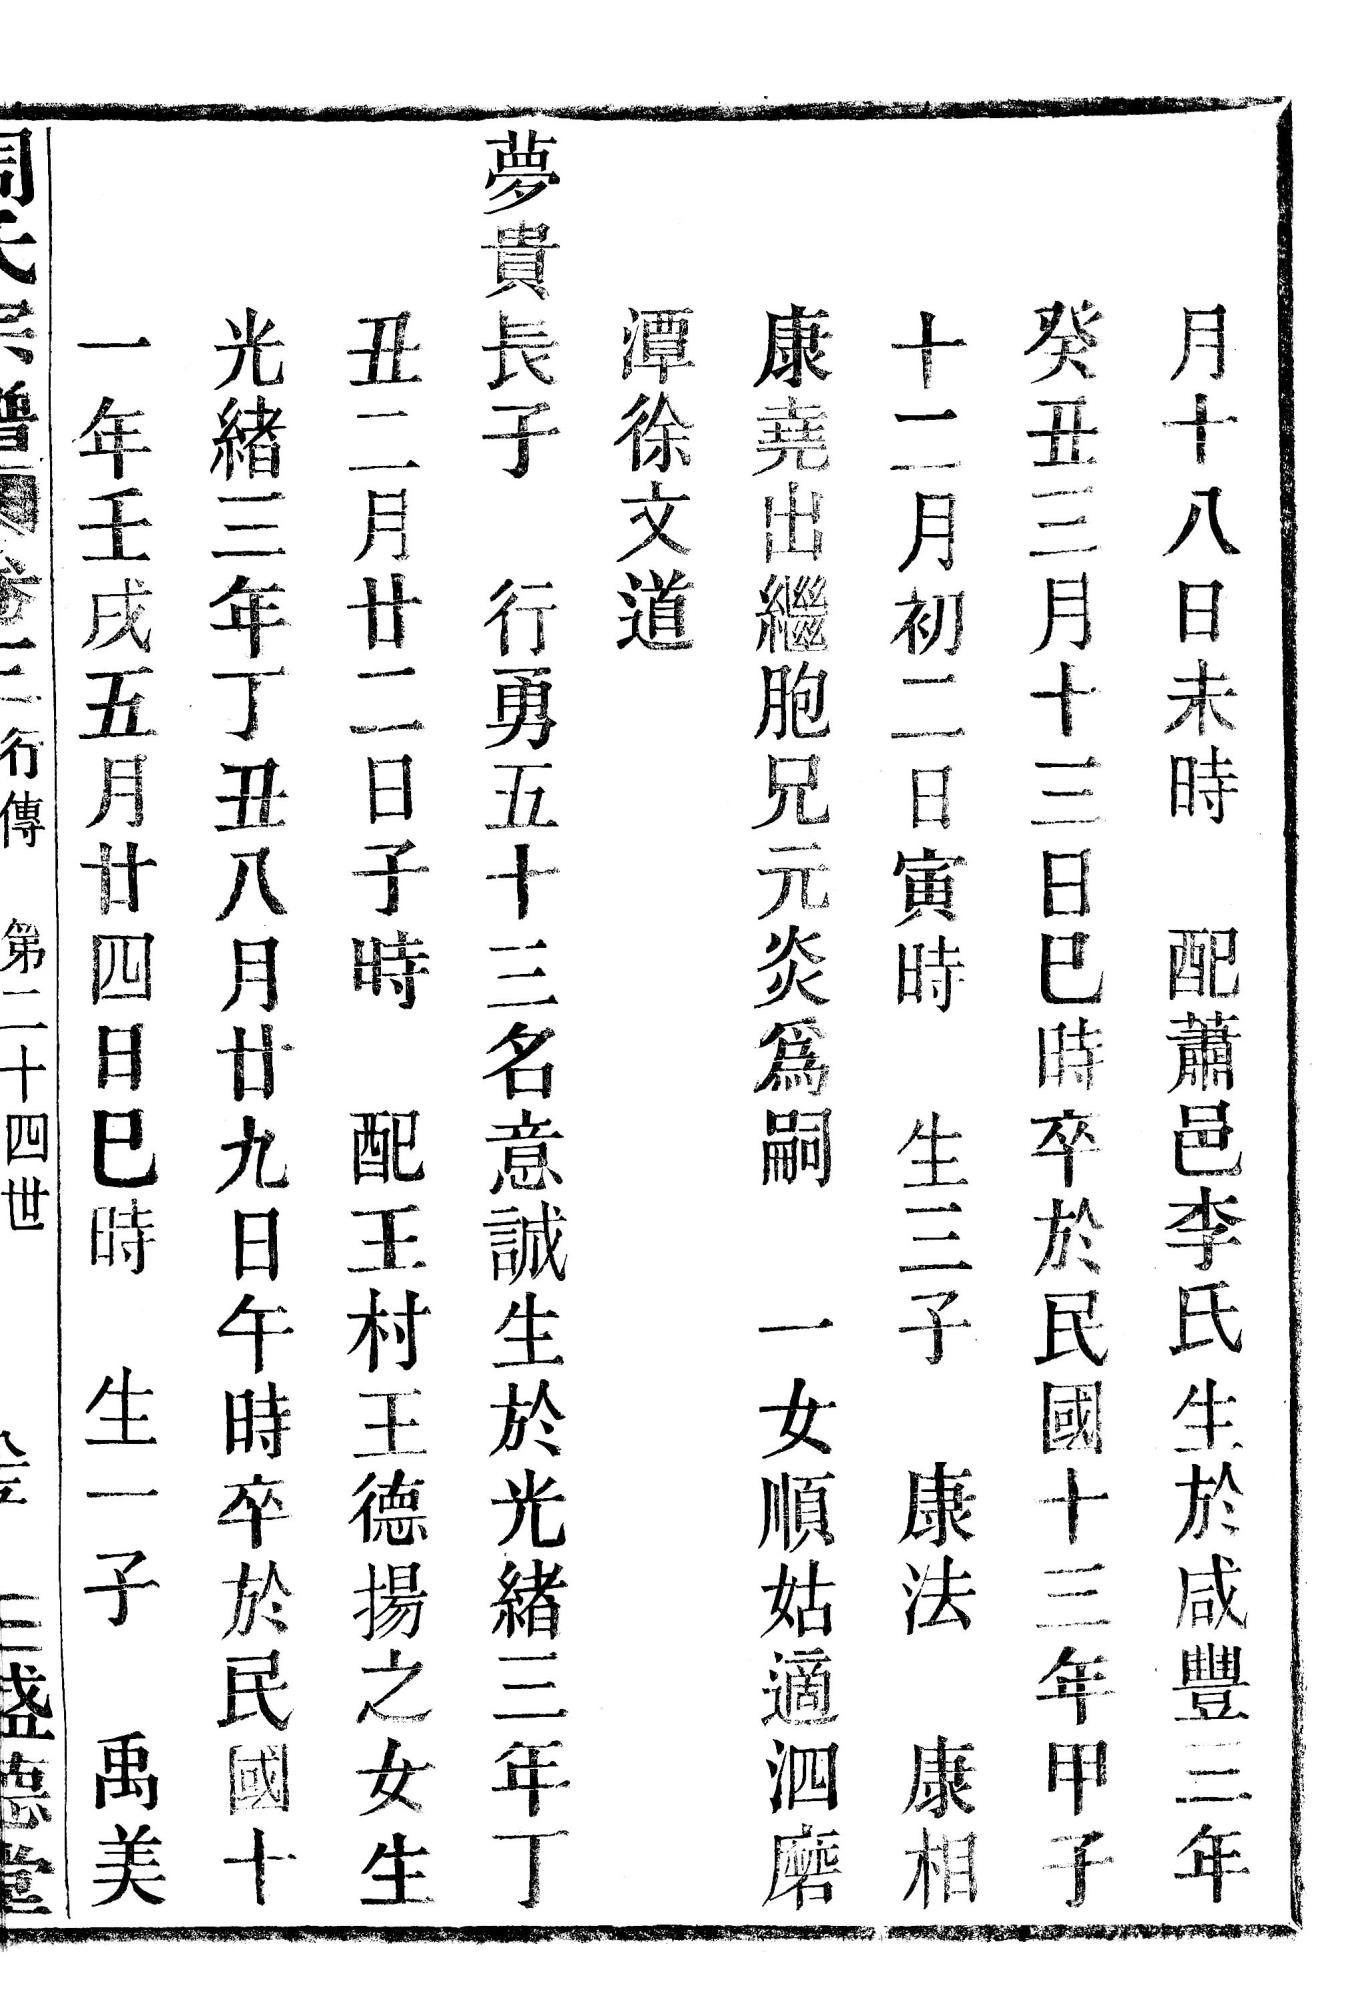 月十八日未時　配蕭邑李氏生於咸豐三年
癸丑三月十三日巳時卒於民國十三年甲子
十二月初二日寅時　生三子　康法　康相
康堯出繼胞兄元炎爲嗣　一女順姑適泗磨
潭徐文道
夢貴長子　行勇五十三名意誠生於光緒三年丁
丑二月廿二日子時　配王村王德揚之女生
光緒三年丁丑八月廿九日午時卒於民國十
一年壬戌五月廿四日巳時　生一子　禹美
周氏宗譜　卷二　行傳　第二十四世　盛德堂